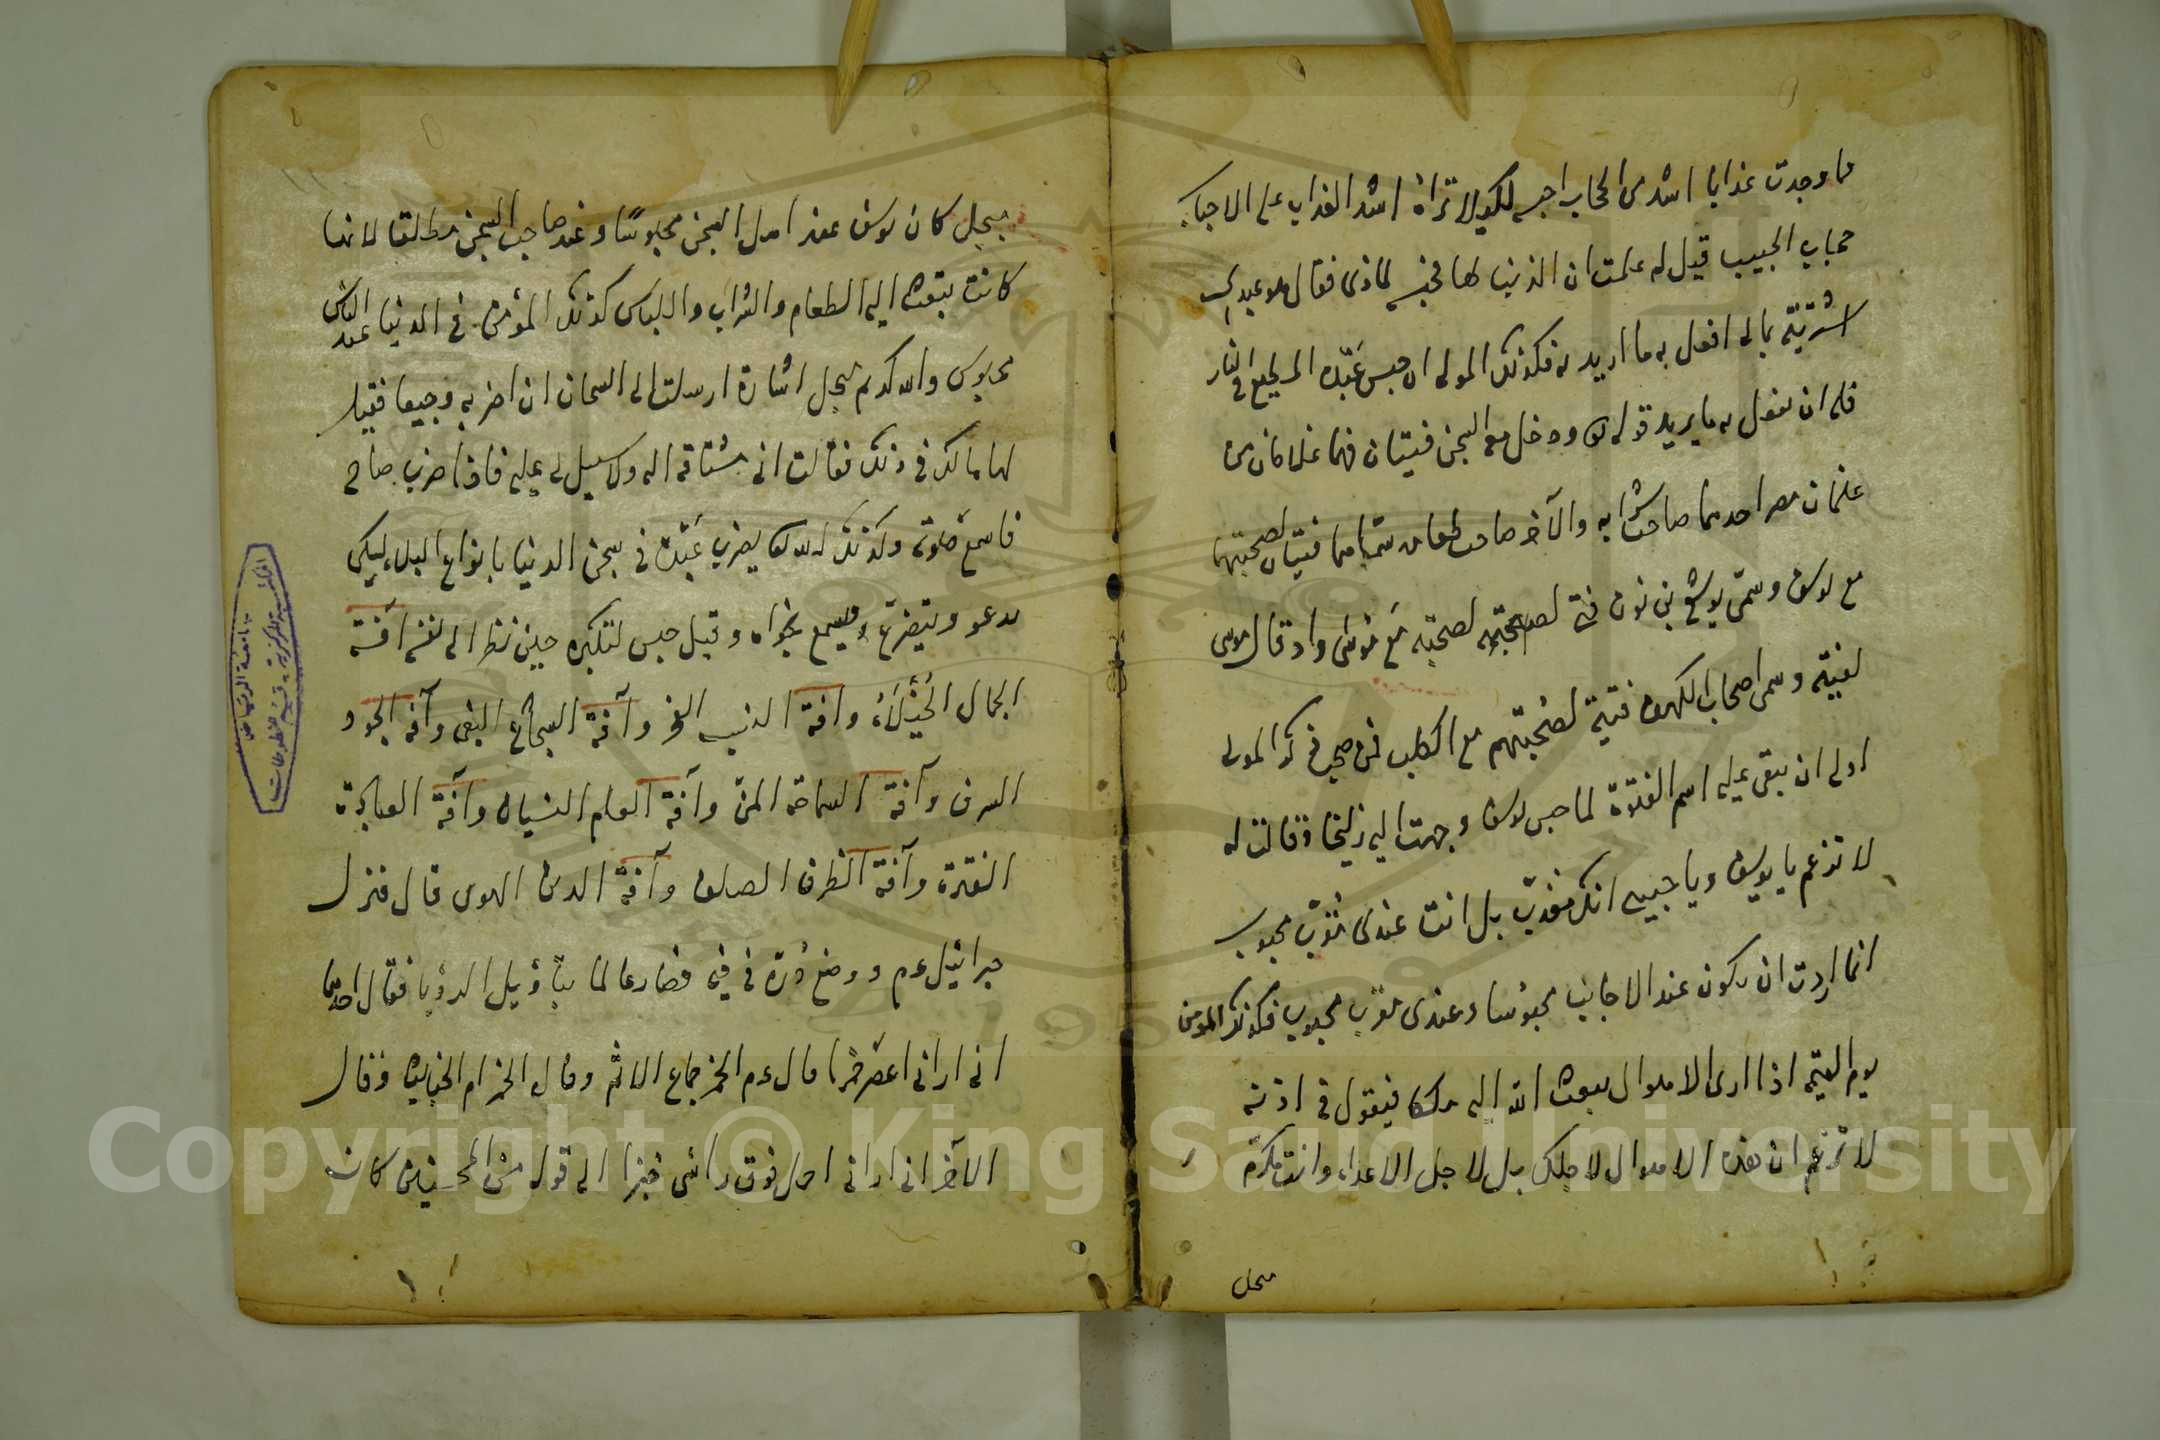 ما وجدت عذابا اشد من الحجاب احبسه لكيلا تراه اشد العذاب على الاحباب
حجاب الحبيب قيل له علمت ان الذنب لها فحبسه لماذى فقال هو عبدى
اشتريته بمالى افعل به ما اريد فكذلك المولى ان حبس عبده المطيع فى النار
فله ان يفعل به ما يريد قوله تع ودخل معه السجن فتيان فهما غلامان من
غلمان مصر احدهما صاحب شرابه والآخر صاحب طعامه سماهما فتيان لصحبتهما
مع يوسف وسمى يوشع بن نون فتى لصحبته مع موسى واذ قال موسى
لفتيه وسمى اصحاب الكهف فتية لصحبتهم مع الكلب فمن صحب فى ذكر المولى
اولى ان يبقى عليه اسم الفتوة لما حبس يوسف وجهت اليه زليخا وقالت له
لا تزعم يا يوسف ويا حبيبى انك معذب بل انت عندى مقرب محبوب
انما اردت ان تكون عند الاجانب محبوسا وعندى مقرب محبوب فكذلك المؤمن
يوم القيمة اذا ارى الاهوال يبعث الله اليه ملكا فيقول فى اذنه
لا تزعم ان هذه الاهوال لاجلك بل لاجل الاعداء وانت مكرم
مبجل
مبجل كان يوسف عند اهل السجن محبوسا وعند صاحب السجن مطلقا لانها
كانت تبعث اليه الطعام والشراب واللباس كذلك المؤمن فى الدنيا عند الناس
محبوس والله كريم مبجل اشارة ارسلت الى السجان ان اضربه وجيعا فقيل
لها مالك فى ذلك فقالت انى مشتاقة اليه ولا سبيل لى عليه فاذا ضرب صاح
فاسمع صوته وكذلك الله تعالى يضرب عبده فى سجن الدنيا بانواع البلاء ليبكى
يدعو ويتضرع ويسمع نجواه وقيل حبس لتكبره حين نظر الى نفسه آفة
الجمال الخيلاء وافة النسب الفخر وآفة الشجاع البغى وآفة الجود
السرف وآفة السماحة المن وآفة العلم النسيان وآفة العبادة
الفترة وآفة الظرف الصلف وآفة الدين الهوى قال فنزل
جبرائيل ءم ووضع درة فى فيه فصار عالما بتأويل الرؤيا فقال احدهما
انى ارانى اعصر خمرا قال ءم الخمر جماع الاثم وقال الخمر ام الخبايث وقال
الآخر انى ارانى احمل فوق رأسى خبزا الى قوله من المحسنين كان
Copyright © King Saud University
1957